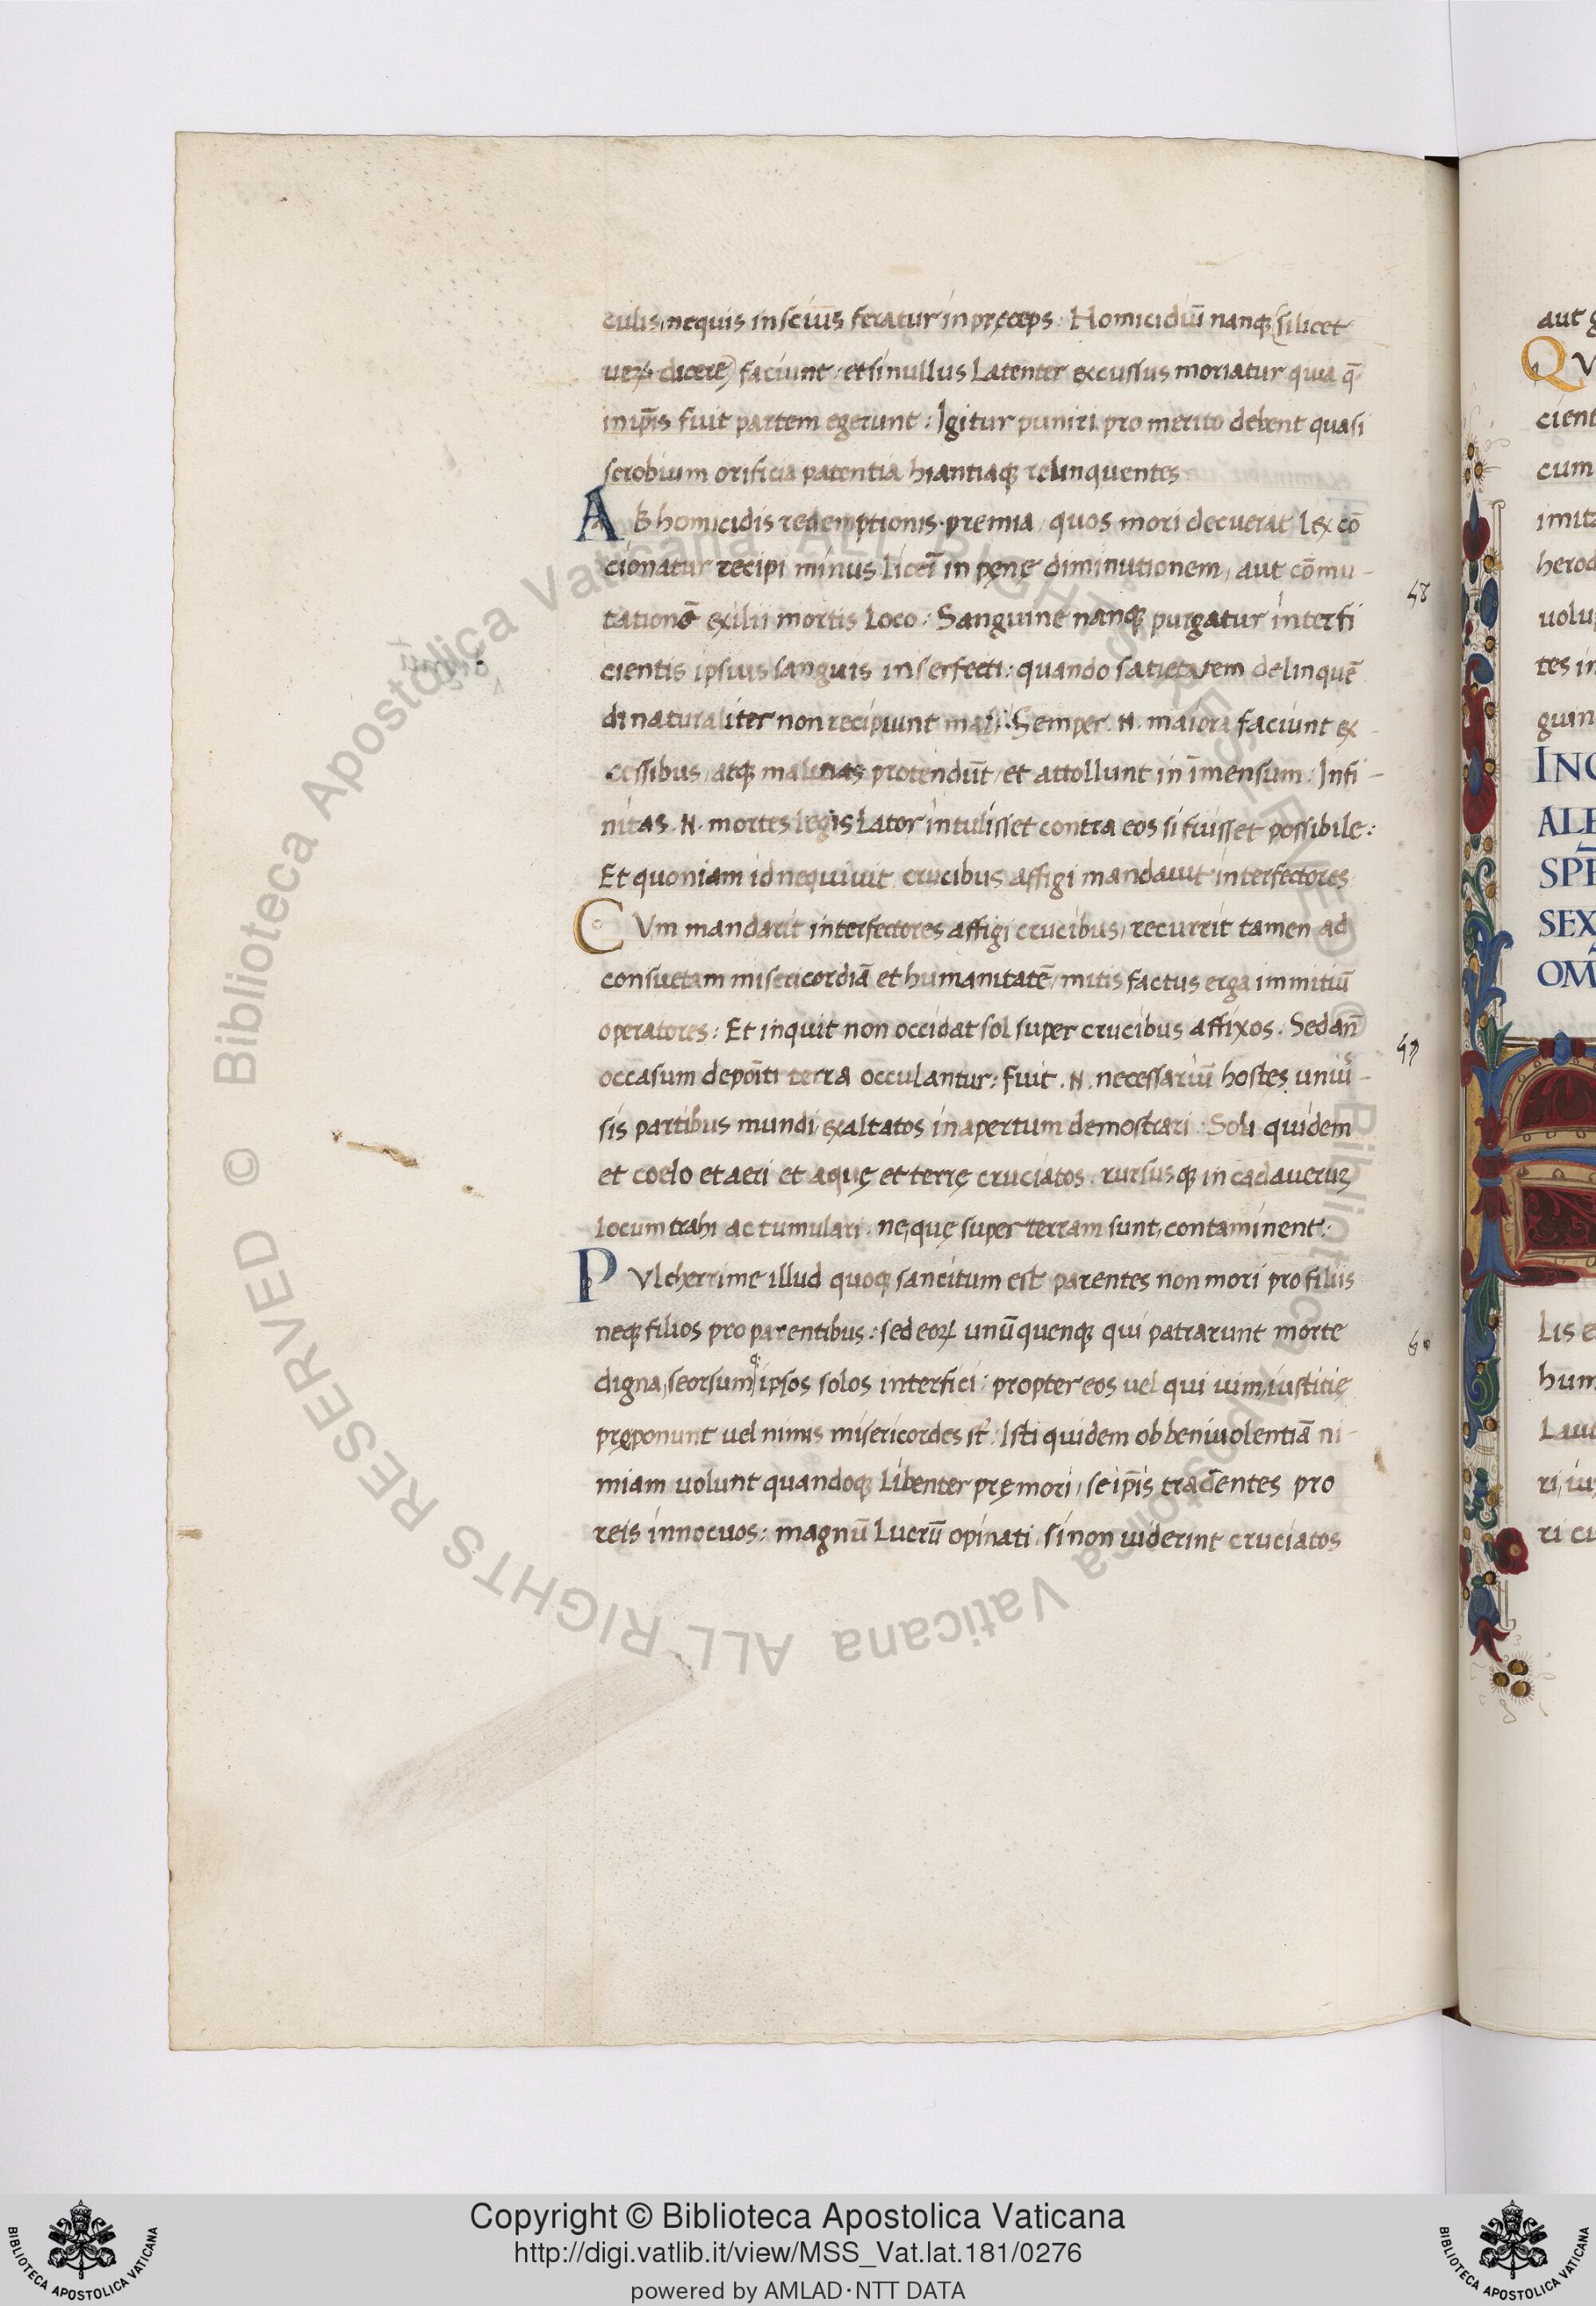 culis, nequis inscius feratur in pręceps. Homicidiũ nanqꝫ (si licet
ueꝝ dicere) faciunt: et si nullus Latenter excussus moriatur quia q̃
in ip̃is fuit partem egerunt: Igitur puniri pro merito debent quasi
scrobium orificia patentia hiantiaqꝫ relinquentes
AB homicidis redemptionis premia, quos mori decuerat lex cõ
cionatur recipi minus licer̃ in pęnę diminutionem, aut cõmu-
tationẽ exilii mortis Loco: Sanguine nanqꝫ purgatur interfi
cientis ipsius sanguis inserfecti: quando satietatem delinquẽ
di naturaliter non recipiunt mali: Semper .N. maiora faciunt ex-
cessibus, atqꝫ malitias protendũt, et attollunt in ĩmensum: Infi-
nitas .N. mortes legis Lator intulisset contra eos si fuisset possibile:
Et quoniam id nequiuit crucibus affigi mandauit interfectores
CVm mandarit interfectores affigi crucibus, recurrit tamen ad
consuetam misericordiã et humanitatẽ, mitis factus erga immitiũ
operatores: Et inquit non occidat sol super crucibus affixos. Sed añ
occasum depoĩti terra occulantur: fuit .N. necessariũ hostes uniũ-
sis partibus mundi exaltatos in apertum demostrari: Soli quidem
et coelo et aeri et aquę et terrę cruciatos. rursusqꝫ in cadauerũ
locum trahi ac tumulari: ne, quę super terram sunt, contaminent:
PVlcherrime illud quoqꝫ sancitum est parentes non mori pro filiis
neqꝫ filios pro parentibus: sed eoꝝ unũquenqꝫ qui patrarunt morte
digna, seorsumqꝫ ipsos solos interfici: propter eos uel qui uim, iustitię
pręponunt uel nimis misericordes st̃: Isti quidem ob beniuolentiã ni-
miam uolunt quandoqꝫ Libenter pręmori, se ip̃is tradentes pro
reis innocuos: magnũ Lucrũ opinati si non uiderint cruciatos
58
59
60
aut g
QV
cient
cum
imit
herod
uolu
tes in
guin
INC
ALE
SPE
SEX
OM
Lis e
hum
Laut
ri, iu
ri cu
© Biblioteca Apostolica Vaticana ALL RIGHTS RESERVED © Biblioteca Apostolica Vaticana ALL RIGHTS RESERVED
BIBLIOTECA APOSTOLICA VATICANA
Copyright © Biblioteca Apostolica Vaticana
http://digi.vatlib.it/view/MSS_Vat.lat.181/0276
powered by AMLAD·NTT DATA
BIBLIOTECA APOSTOLICA VATICANA